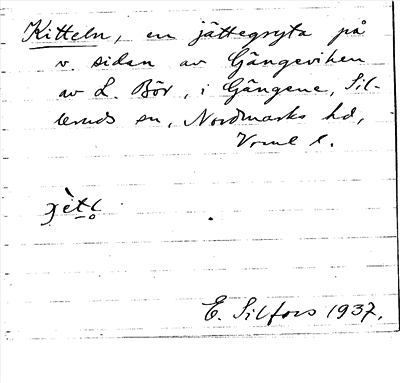 Kitteln, en jättegryta på
v sidan av Gängeviken
av L. Bör, i Gängene, Sil-
leruds sn, Nordmarks hd,
Vrml l.
E. Silfors 1937.